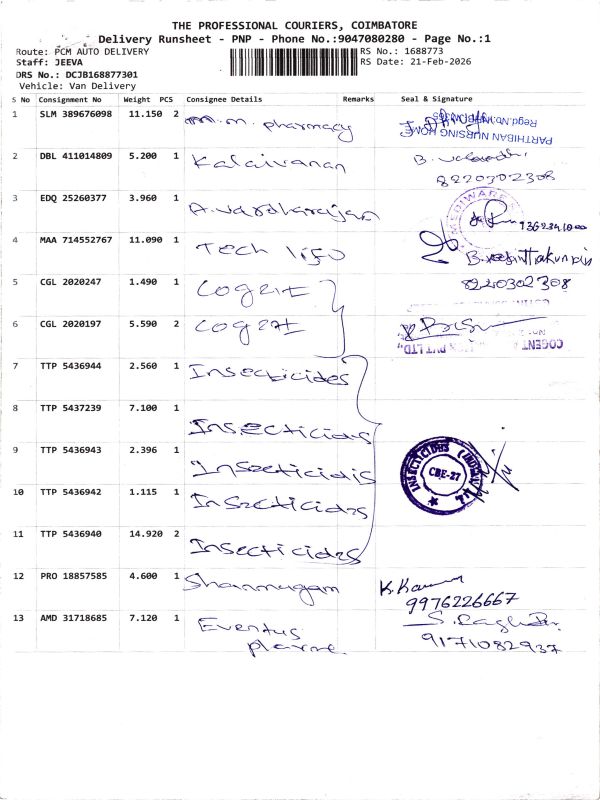 THE PROFESSIONAL COURIERS, COIMBATORE
Delivery Runsheet - PNP - Phone No.:9047080280 - Page No.:1
Route: PCM AUTO DELIVERY RS No.: 1688773
Staff: JEEVA RS Date: 21-Feb-2026
DRS No.: DCJB168877301
Vehicle: Van Delivery
S No Consignment No Weight PCS Consignee Details Remarks Seal & Signature
1 SLM 389676098 11.150 2 m.m. pharmacy
PARTHIBAN NURSING HOME
2 DBL 411014809 5.200 1 Kalaivanan
8220302308
3 EDQ 25260377 3.960 1 A.Vardharajan
MEDIWARE
4 MAA 714552767 11.090 1 Tech life
5 CGL 2020247 1.490 1 Cogent 8220302308
6 CGL 2020197 5.590 2 Cogent
COGENT PVT LTD
7 TTP 5436944 2.560 1 Insecticides
8 TTP 5437239 7.100 1 Insecticides
9 TTP 5436943 2.396 1 Insecticides
INSECTICIDES (INDIA) Ltd.
CBE-27
10 TTP 5436942 1.115 1 Insecticides
11 TTP 5436940 14.920 2 Insecticides
12 PRO 18857585 4.600 1 Shanmugam
9976226667
13 AMD 31718685 7.120 1 Eventus
9171082937